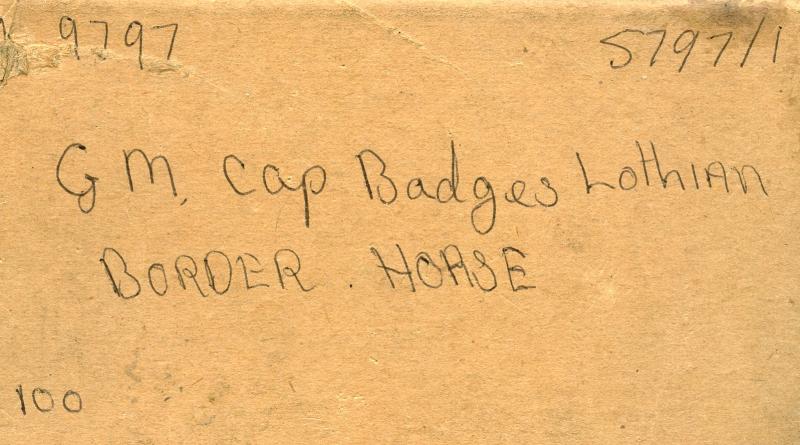 9797 5797/1
G M. Cap Badges Lothian
BORDER . HORSE
100